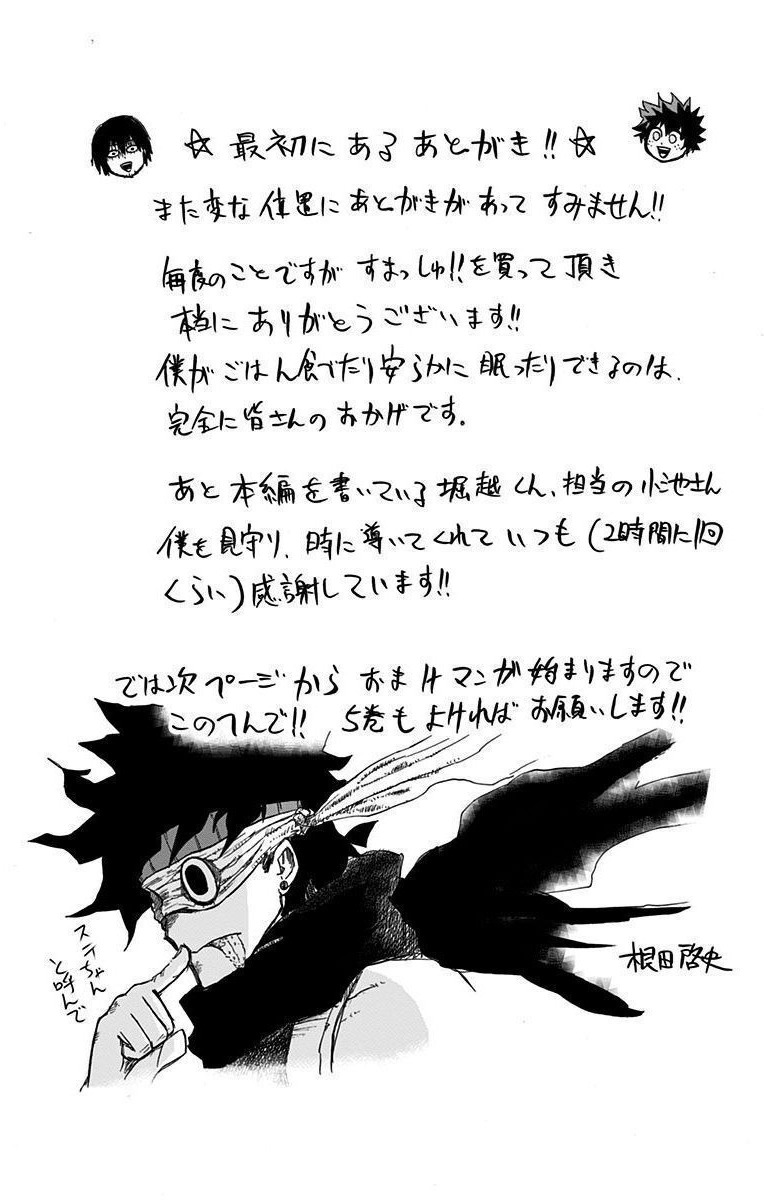 ☆ 最初にある あとがき!! ☆
また変な位置にあとがきがあって すみません!!
毎度のことですが すまっしゅ!!を買って頂き
本当に ありがとうございます!!
僕が ごはん食べたり安らかに 眠ったりできるのは、
完全に皆さんのおかげです。
あと 本編を書いている 堀越くん、担当の小池さん
僕を見守り、時に導いてくれて いつも(2時間に1回
くらい)感謝しています!!
では次ページから おまけマンガ始まりますので
このへんで!! 5巻もよければ お願いします!!
ステちゃん
と呼んで
根田啓史